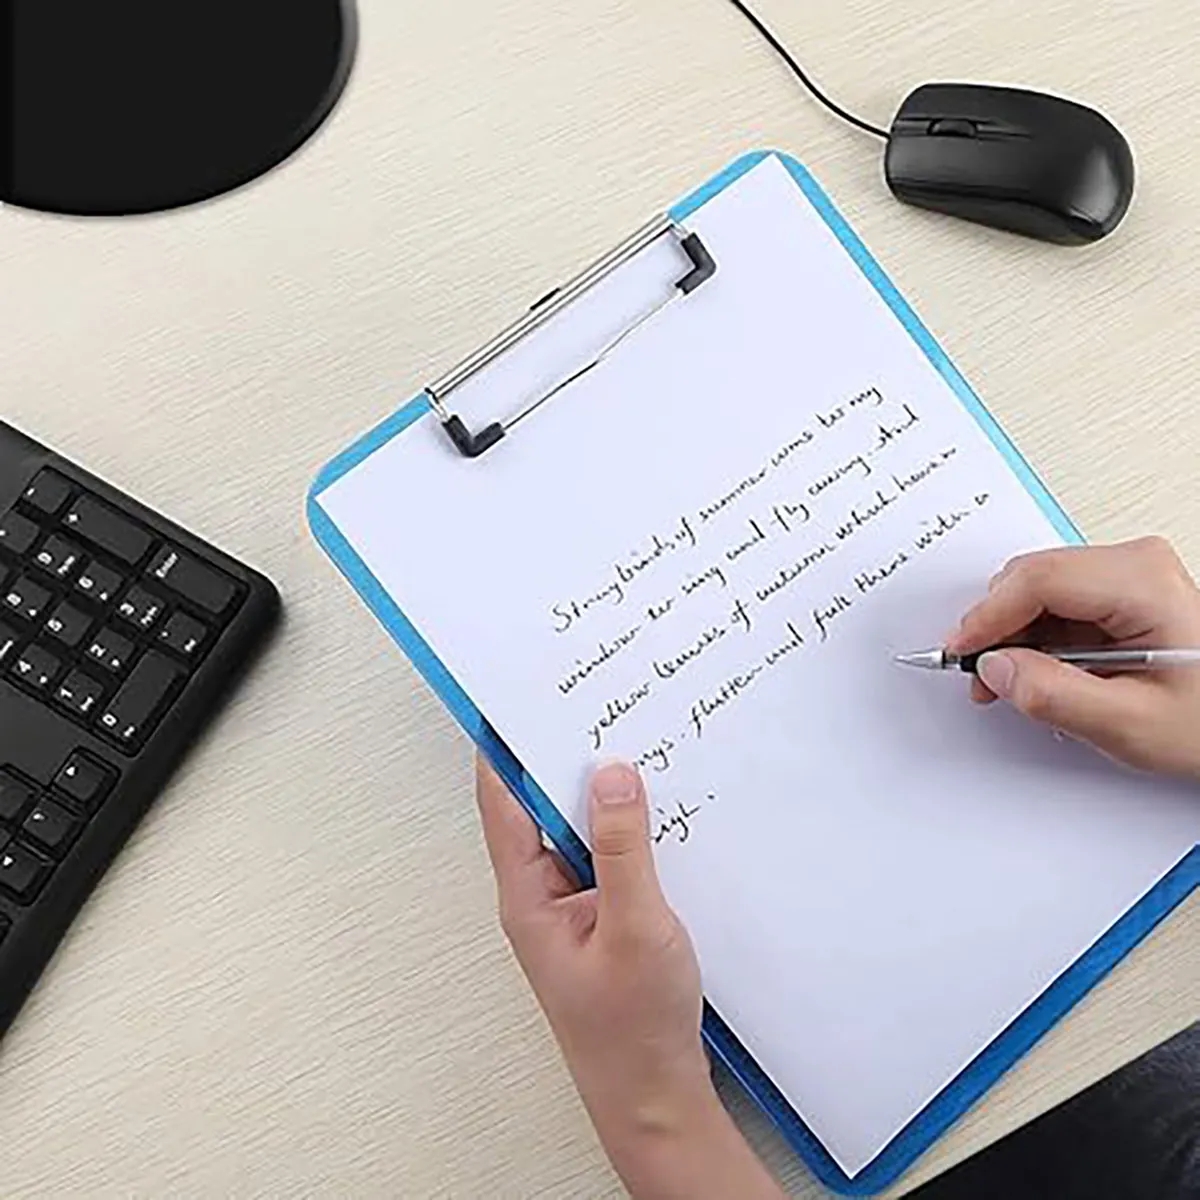 Stray birds of summer come to my
window to sing and fly away. And
yellow leaves of autumn which have no
songs. flutter and fall there with a
sigh.
Enter
+
9
6
3
5
2
4
1
0